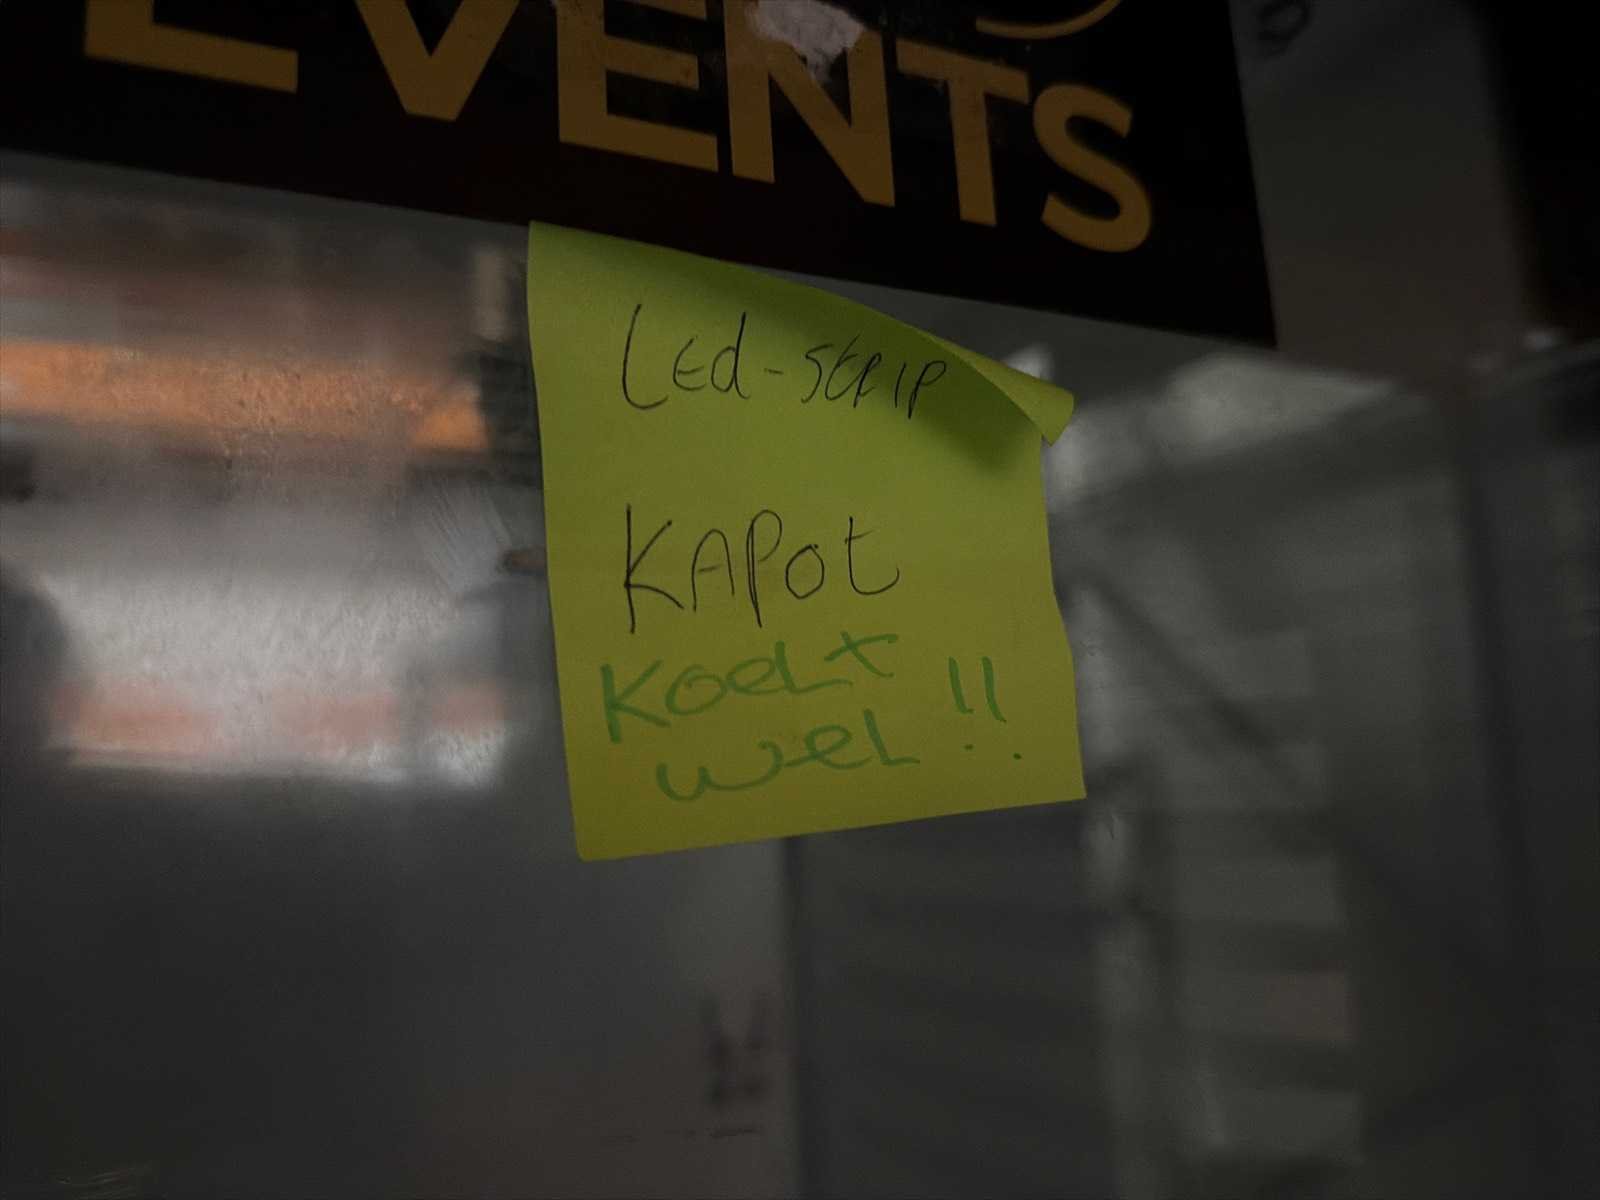 EVENTS
Led-strip
KAPot
KoeLt
weL !!